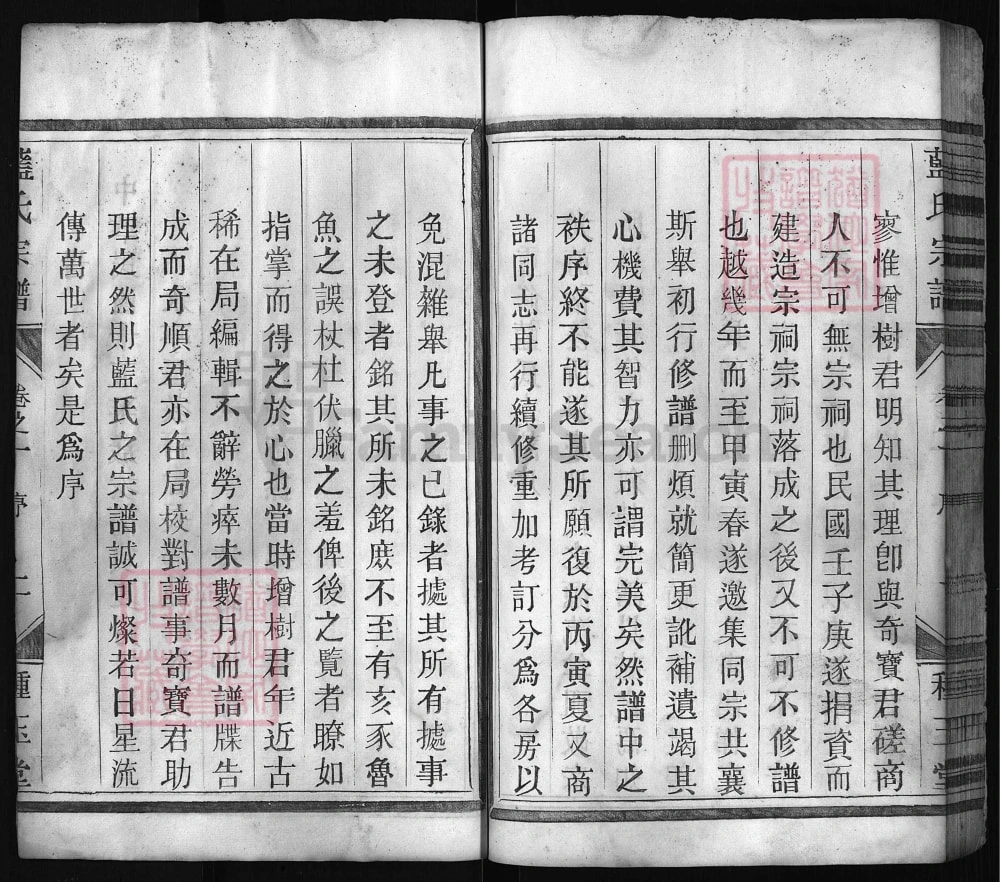 寥惟增樹君明知其理卽與奇寶君磋商
人不可無宗祠也民國壬子庚遂捐資而
建造宗祠宗祠落成之後又不可不修譜
也越幾年而至甲寅春遂邀集同宗共襄
斯舉初行修譜删煩就简更訛補遺竭其
心機費其智力亦可謂完美矣然譜中之
秩序終不能遂其所願復於丙寅夏又商
諸同志再行續修重加考訂分爲各房以
免混雜舉凡事之已錄者摅其所有摅事
之未登者銘其所未銘庶不至有亥豕魯
魚之誤杖杜伏臘之羞俾後之覽者瞭如
指掌而得之於心也當時增樹君年近古
稀在局編輯不辭勞瘁未數月而譜牒告
成而奇順君亦在局校對譜事奇寶君助
理之然則藍氏之宗譜誠可燦若日星流
傳萬世者矣是爲序
藍氏宗譜
卷之一
序
種玉堂
FamilySearch